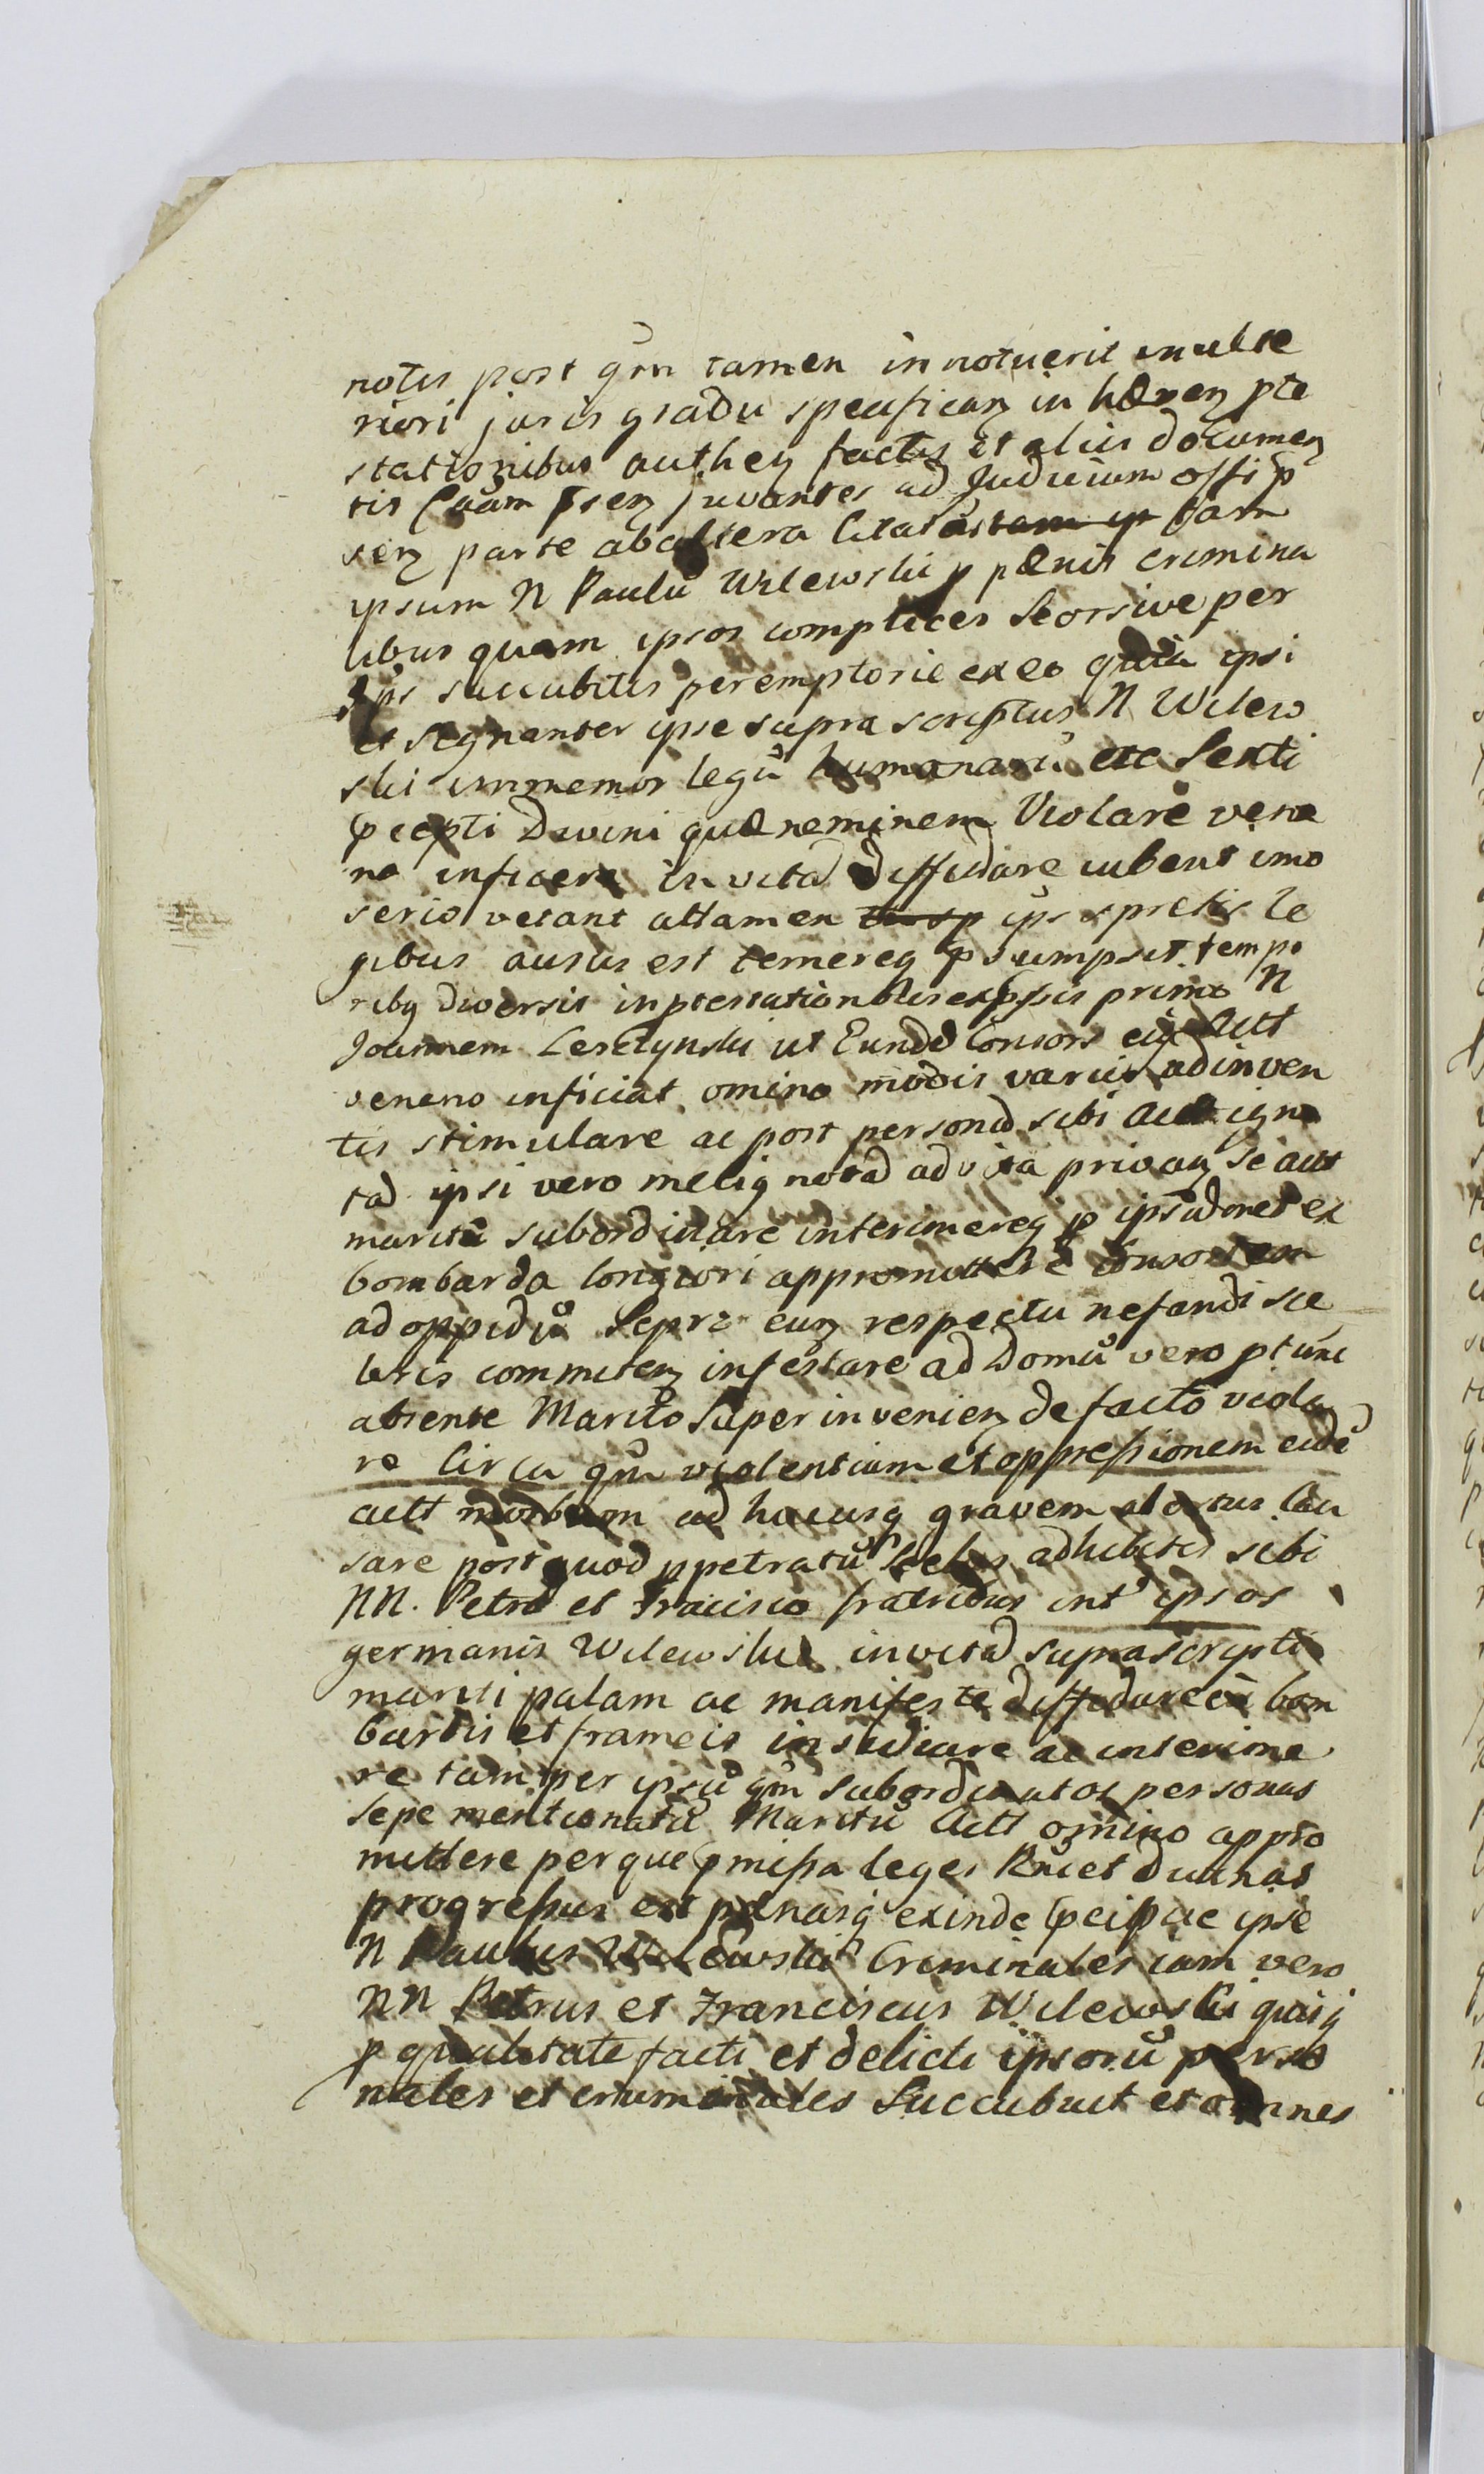 notis post qm tamen innotuerit in ulte
riori juris gradu specificanꝫ in hærenꝫ pte
stationibus authenꝫ factis et aliis documenꝫ
tis Caam psenꝫ juvantes ad Judicium offi p
senꝫ parte ab altera Citat tam
ipsum N Paulū Wilewski p pænis crimina
libus quam ipsos complices Seorsive per
ips succubitis peremptorie ex eo quia ipsi
et Segnanter ipse supra scriptus N Wilew
ski immemor legū humanarū etc Sexti
pcepti Divini quæ neminem Violare vene
no inficere in vitā diffidare iubent imo
serio vetant attamen ips spretis le
gibus ausus est temereq psumpsit tempo
ribq diversis in ptestationibus expssis primo N
Joannem Leszczynski ut Eundē Consors eiq Actt
veneno inficiat omino modis variis adinven
tis stimulare ac post personā sibi igno
tā ipsi vero meliq notā ad vita privanꝫ Se aut
maritū subordinare interimereq p ipsumet ex
bombarda longiori appromittere Consortem
ad oppidū Sepri eunꝫ respectu nefandi sce
leris commitenꝫ infestare ad Domū vero ptunc
absente Marito Super invenienꝫ de facto viola
re Circa qm violentiam et oppressionem eidē
actt morbum ad hucusq gravem Cau
sare post quod ppetratū Scelus adhibitis sibi
NN. Petro et Fracisco fratribus intᵉ ipsos
germanis Wilewskie in vitā suprascripti
mariti palam ac manifeste diffidare eū bom
bardis et frameis insidiare ac interime
re tam per ipsū qm Subordinatos personas
Sepe mentionatū Maritū Actt omino appro
mittere per que pmissa leges Rni et Divinas
progressus est pænasq exinde pcipue ipse
N Paulus Wilewski Criminales iam vero
NN Petrus et Franciscus Wilewski quiq
p qualitate facti et delicti ipsorū perso
nales et criminales Succubuit et omnes